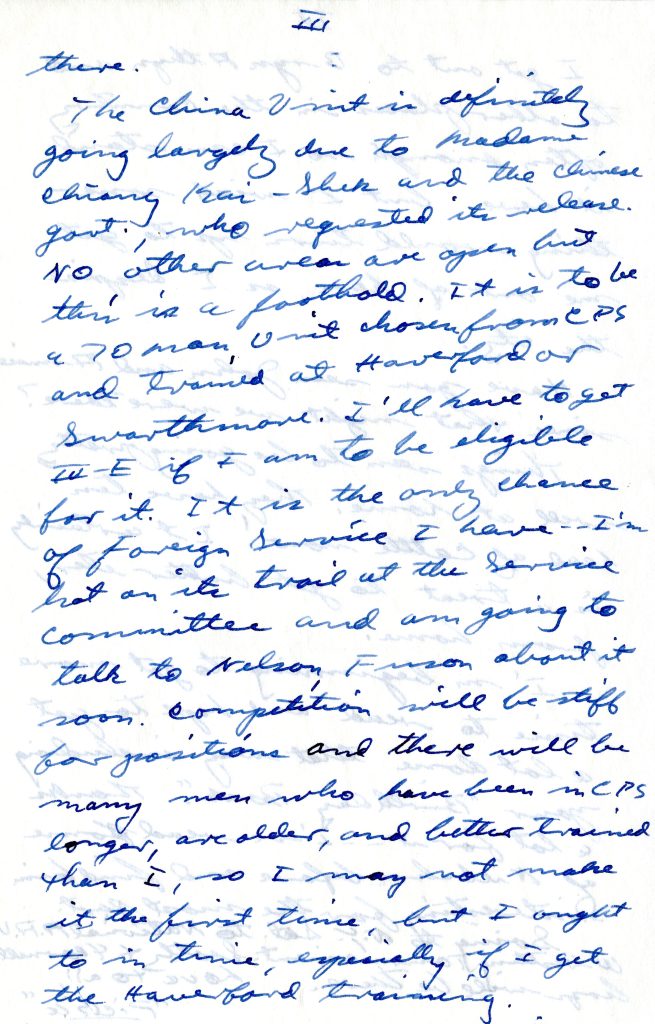 III
there.
The China Unit is definitely
going largely due to Madame
Chiang Kai-Shek and the Chinese
govt., who requested its release.
No other areas are open but
this is a foothold. It is to be
a 70 man Unit chosen from CPS
and trained at Haverford or
Swarthmore. I'll have to get
III-E if I am to be eligible
for it. It is the only chance
of Foreign Service I have--I'm
hot on its trail at the Service
Committee and am going to
talk to Nelson Fuson about it
soon. Competition will be stiff
for positions and there will be
many men who have been in CPS
longer, are older, and better trained
than I, so I may not make
it the first time, but I ought
to in time, especially if I get
the Haverford training.